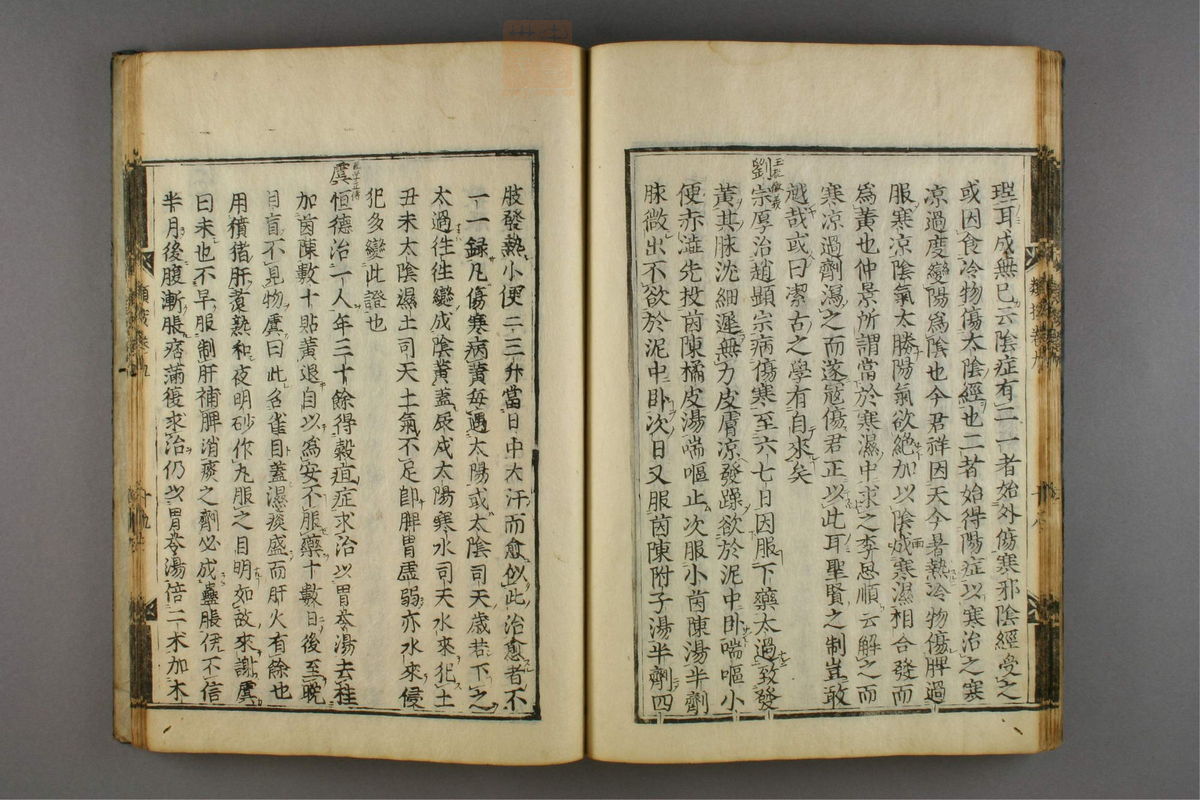 理耳成無已云陰症有二一者始外傷寒邪陰經受之
或因食冷物傷太陰經也二者始得陽症以寒治之寒
涼過度變陽為陰也今君祥因天令暑熱冷物傷脾過
服寒涼陰氣太勝陽氣欲絶加以陰雨寒濕相合發而
為黃也仲景所謂當於寒濕中求之李思順云解之而
寒涼過劑瀉之而逐寇傷君正以此耳聖賢之制豈敢
越哉或曰潔古之學有自來矣
劉宗厚治趙顯宗病傷寒至六七日因服下藥太過致發
黃其脉沈細遲無力皮膚凉發躁欲於泥中卧喘嘔小
便赤澁先投茵陳橘皮湯喘嘔止次服小茵陳湯半劑
脉微出不欲於泥中卧次日又服茵陳附子湯半劑四
肢發熱小便二三升當日中大汗而愈似此治愈者不
一一録凡傷寒病黃每遇太陽或太陰司天歳若下之
太過徃徃變成陰黃蓋辰戌太陽寒水司天水來犯土
丑未太陰濕土司天土氣不足即脾胃虛弱亦水來侵
犯多變此證也
虞恒德治一人年三十餘得穀疸症求治以胃苓湯去桂
加茵陳數十貼黃退自以為安不服藥十數日後至晩
目盲不見物虞曰此名雀目蓋濕痰盛而肝火有餘也
用豶猪肝煑熟和夜明砂作丸服之目明如故來謝虞
曰未也不早服制肝補脾消痰之劑必成蠱脹伊不信
半月後腹漸脹痞滿復求治仍以胃苓湯倍二朮加木